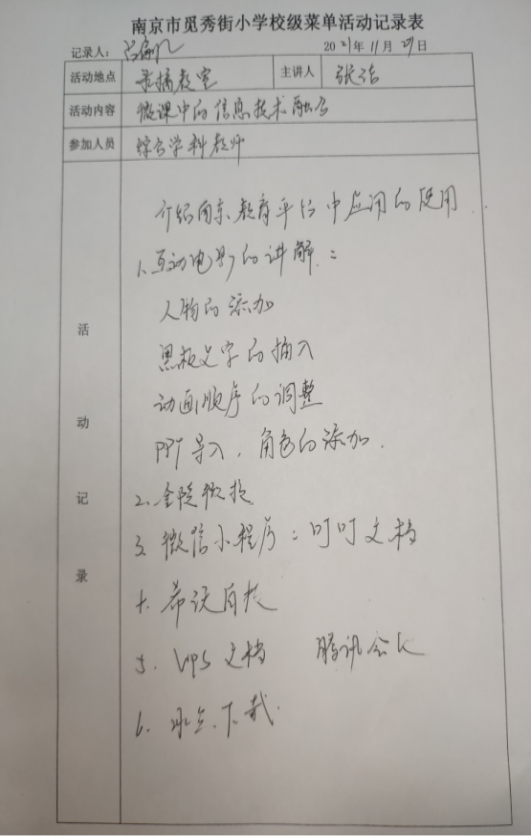 南京市觅秀街小学校级菜单活动记录表
记录人： 2021年11月29日
活动地点 录播教室 主讲人 张洁
活动内容 微课中的信息技术融合
参加人员 综合学科教师
活动记录
介绍南京教育平台中应用的使用
1、互动电影的讲解：
人物的添加
黑板文字的插入
动画顺序的调整
PPT导入，角色的添加.
2、金陵微校
3、微信小程序：叮叮文档
4. 希沃白板
5. WPS文档 腾讯会议
6. 下载.